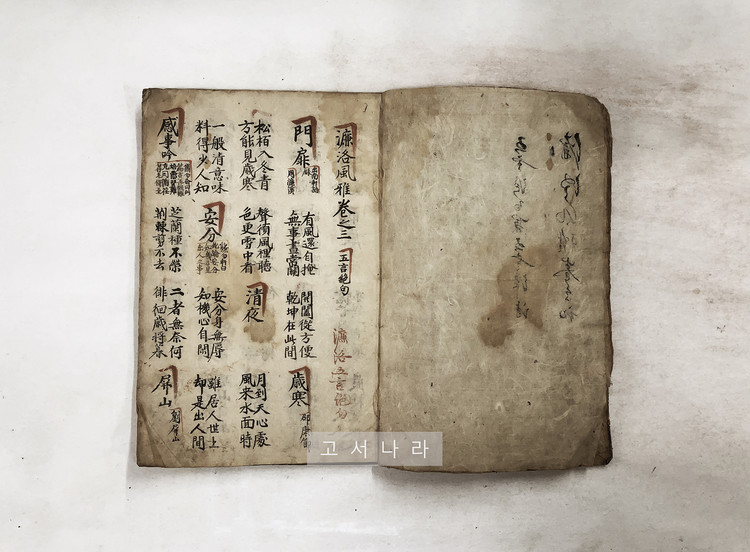 濂洛風雅卷之三 五言絶句
濂洛五言絶句
門扉 周濂溪
有風還自掩
無事晝常關
開闔從方便
乾坤在此間
歲寒 邵康節
松栢入冬青
方能見歲寒
聲須風裡聽
色更雪中看
清夜
月到天心處
風来水面時
一般清意味
料得少人知
安分
安分身無辱
知機心自閑
雖居人世上
却是出人間
感事吟
芝蘭種不榮
荊棘剪不去
二者無奈何
徘徊歲將暮
屛山 劉屛山
고서나라